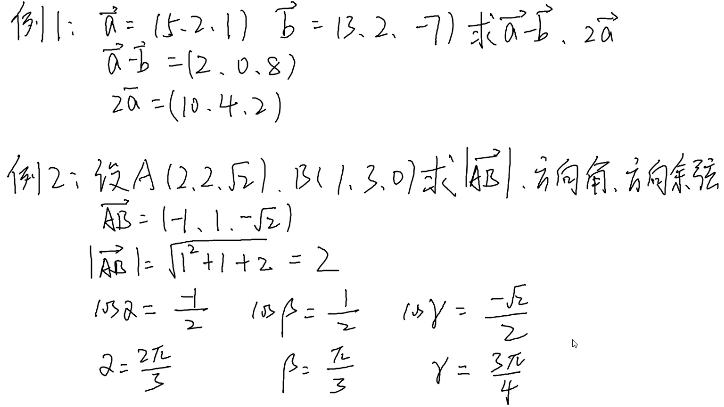 例1: $\vec{a} = (5, 2, 1)$ $\vec{b} = (3, 2, -7)$ 求 $\vec{a}-\vec{b}$、$2\vec{a}$
$\vec{a}-\vec{b} = (2, 0, 8)$
$2\vec{a} = (10, 4, 2)$
例2: 设A$(2, 2, \sqrt{2})$、B$(1, 3, 0)$ 求 $|\overrightarrow{AB}|$、方向角、方向余弦
$\overrightarrow{AB} = (-1, 1, -\sqrt{2})$
$|\overrightarrow{AB}| = \sqrt{1^2+1+2} = 2$
$\cos\alpha = \frac{-1}{2}$ $\cos\beta = \frac{1}{2}$ $\cos\gamma = \frac{-\sqrt{2}}{2}$
$\alpha = \frac{2\pi}{3}$ $\beta = \frac{\pi}{3}$ $\gamma = \frac{3\pi}{4}$